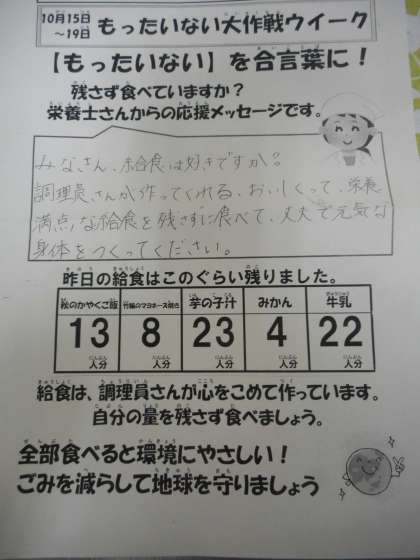 10月15日
~19日
もったいない大作戦ウイーク
【もったいない】を合言葉に!
残さず食べていますか?
栄養士さんからの応援メッセージです。
みなさん、給食は好きですか?
調理員さんが作ってくれる、おいしくって、栄養
満点な給食を残さずに食べて、丈夫で元気な
身体をつくってください。
昨日の給食はこのぐらい残りました。
秋のかやくご飯 竹輪のマヨネーズ焼き 芋の子汁 みかん 牛乳
13 8 23 4 22
人分 人分 人分 人分 人分
給食は、調理員さんが心をこめて作っています。
自分の量を残さず食べましょう。
全部食べると環境にやさしい!
ごみを減らして地球を守りましょう